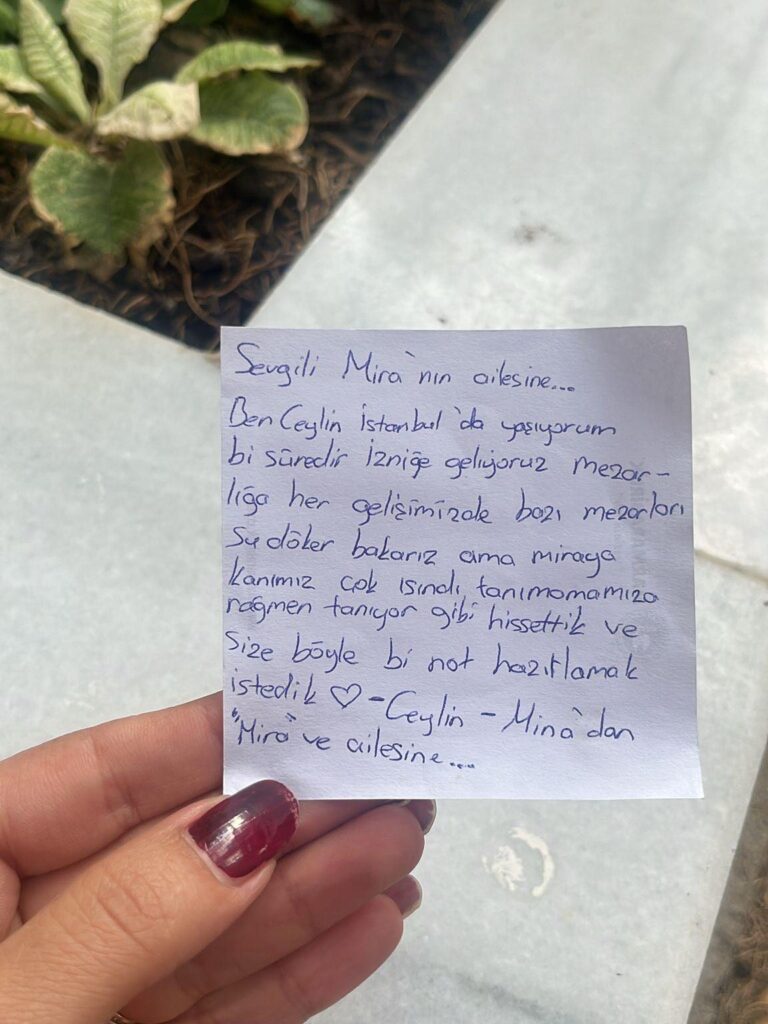 Sevgili Mira'nın ailesine...
Ben Ceylin İstanbul'da yaşıyorum
bi süredir İzniğe geliyoruz mezar-
lığa her gelişimizde bazı mezarları
su döker bakarız ama miraya
kanımız çok ısındı tanımamamıza
rağmen tanıyor gibi hissettik ve
size böyle bi not hazırlamak
istedik ♡ -Ceylin - Mina'dan
"Mira" ve ailesine....